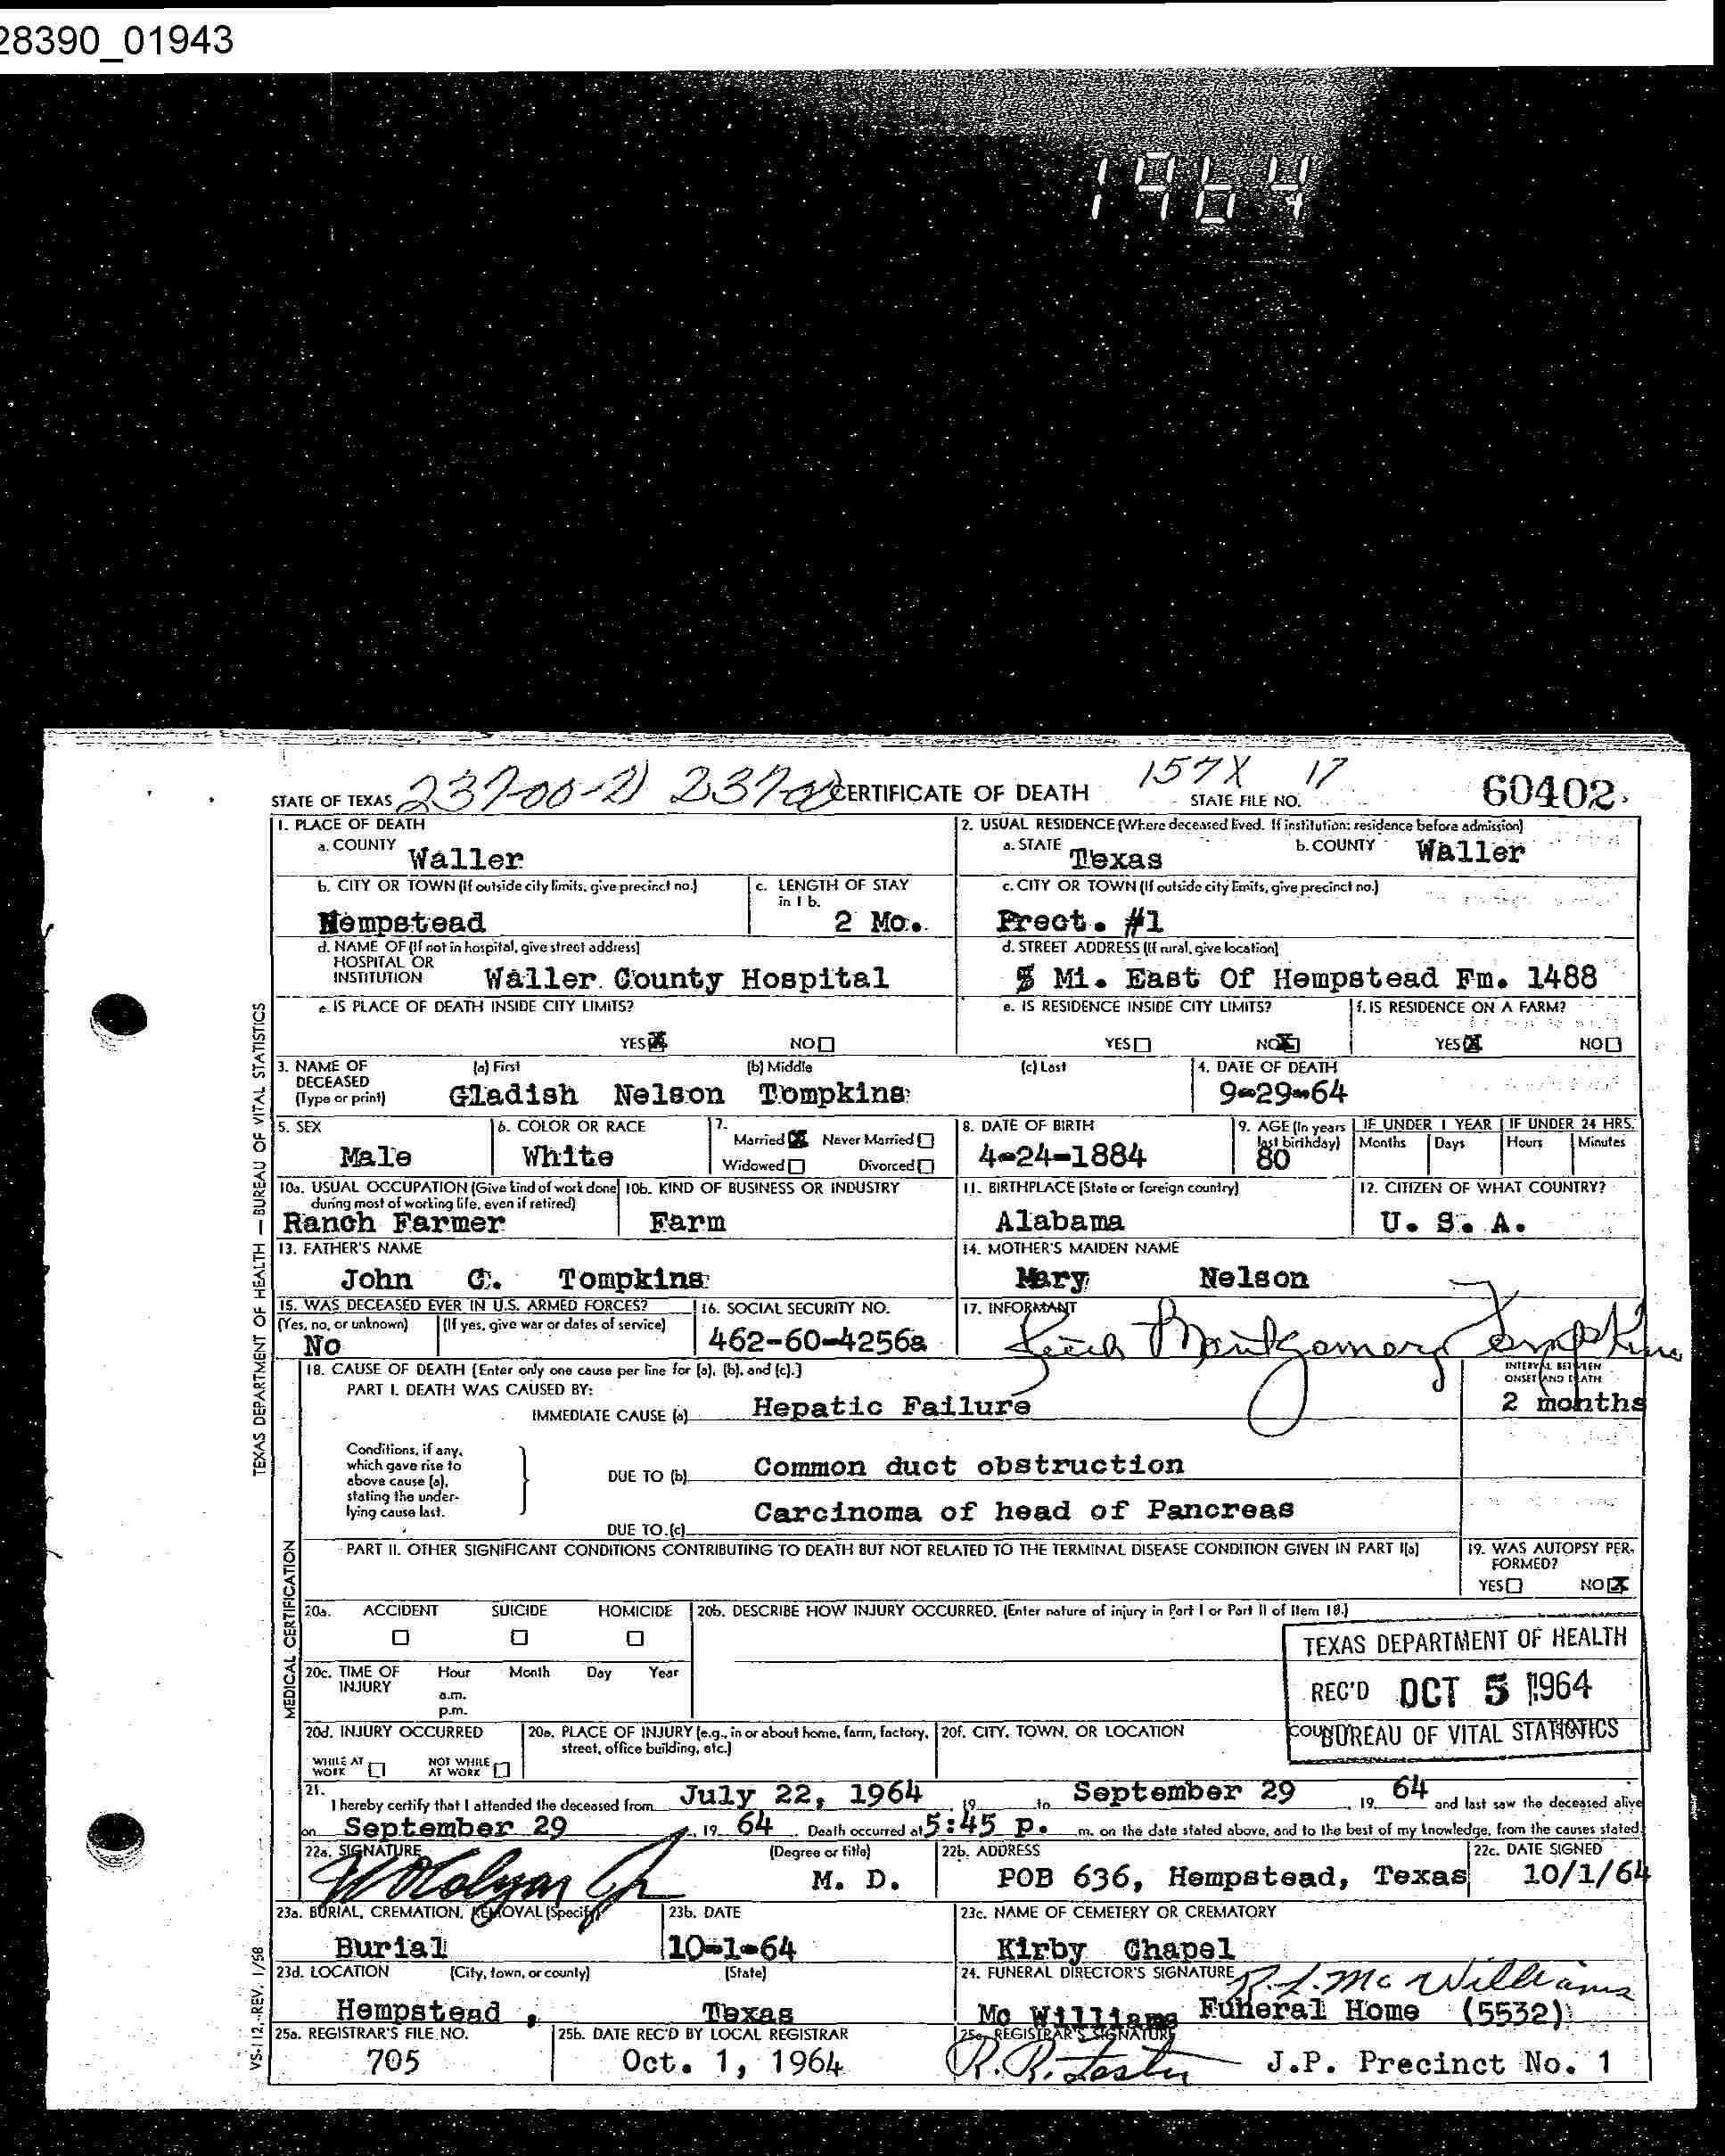 28390_01943
1964
STATE OF TEXAS CERTIFICATE OF DEATH STATE FILE NO. 157X 17 60402
1. PLACE OF DEATH
a. COUNTY Waller
2. USUAL RESIDENCE (Where deceased lived. If institution: residence before admission)
a. STATE Texas b. COUNTY Waller
b. CITY OR TOWN (If outside city limits, give precinct no.) Hempstead
c. LENGTH OF STAY in 1 b. 2 Mo.
c. CITY OR TOWN (If outside city limits, give precinct no.) Prect. #1
d. NAME OF (If not in hospital, give street address) HOSPITAL OR INSTITUTION Waller County Hospital
d. STREET ADDRESS (If rural, give location) Mi. East Of Hempstead Fm. 1488
e. IS PLACE OF DEATH INSIDE CITY LIMITS? YES X NO
e. IS RESIDENCE INSIDE CITY LIMITS? YES NO X
f. IS RESIDENCE ON A FARM? YES X NO
3. NAME OF DECEASED (Type or print) (a) First (b) Middle (c) Last
Gladish Nelson Tompkins
4. DATE OF DEATH 9-29-64
5. SEX Male
6. COLOR OR RACE White
7. Married X Never Married Widowed Divorced
8. DATE OF BIRTH 4-24-1884
9. AGE (In years last birthday) 80
IF UNDER 1 YEAR Months Days IF UNDER 24 HRS. Hours Minutes
10a. USUAL OCCUPATION (Give kind of work done during most of working life, even if retired) Ranch Farmer
10b. KIND OF BUSINESS OR INDUSTRY Farm
11. BIRTHPLACE (State or foreign country) Alabama
12. CITIZEN OF WHAT COUNTRY? U. S. A.
13. FATHER'S NAME John G. Tompkins
14. MOTHER'S MAIDEN NAME Mary Nelson
15. WAS DECEASED EVER IN U.S. ARMED FORCES? (Yes, no, or unknown) (If yes, give war or dates of service) No
16. SOCIAL SECURITY NO. 462-60-4256a
17. INFORMANT Montgomery Tompkins
18. CAUSE OF DEATH (Enter only one cause per line for (a), (b), and (c).)
PART I. DEATH WAS CAUSED BY:
INTERVAL BETWEEN ONSET AND DEATH
IMMEDIATE CAUSE (a) Hepatic Failure 2 months
Conditions, if any, which gave rise to above cause (a), stating the underlying cause last.
DUE TO (b) Common duct obstruction
DUE TO (c) Carcinoma of head of Pancreas
PART II. OTHER SIGNIFICANT CONDITIONS CONTRIBUTING TO DEATH BUT NOT RELATED TO THE TERMINAL DISEASE CONDITION GIVEN IN PART I(a)
19. WAS AUTOPSY PERFORMED? YES NO X
20a. ACCIDENT SUICIDE HOMICIDE
20b. DESCRIBE HOW INJURY OCCURRED. (Enter nature of injury in Part I or Part II of Item 18.)
20c. TIME OF INJURY Hour Month Day Year a.m. p.m.
TEXAS DEPARTMENT OF HEALTH
REC'D OCT 5 1964
BUREAU OF VITAL STATISTICS
20d. INJURY OCCURRED WHILE AT WORK NOT WHILE AT WORK
20e. PLACE OF INJURY (e.g., in or about home, farm, factory, street, office building, etc.)
20f. CITY, TOWN, OR LOCATION
21. I hereby certify that I attended the deceased from July 22, 1964, 19 to September 29, 19 64 and last saw the deceased alive
on September 29, 19 64 Death occurred at 5:45 p. m. on the date stated above, and to the best of my knowledge, from the causes stated.
22a. SIGNATURE (Degree or title) M. D.
22b. ADDRESS POB 636, Hempstead, Texas
22c. DATE SIGNED 10/1/64
23a. BURIAL, CREMATION, REMOVAL (Specify) Burial
23b. DATE 10-1-64
23c. NAME OF CEMETERY OR CREMATORY Kirby Chapel
23d. LOCATION (City, town, or county) (State) Hempstead, Texas
24. FUNERAL DIRECTOR'S SIGNATURE R. L. McWilliams
Mc Williams Funeral Home (5532)
25a. REGISTRAR'S FILE NO. 705
25b. DATE REC'D BY LOCAL REGISTRAR Oct. 1, 1964
25c. REGISTRAR'S SIGNATURE R. R. Lester J.P. Precinct No. 1
TEXAS DEPARTMENT OF HEALTH — BUREAU OF VITAL STATISTICS
MEDICAL CERTIFICATION
VS-112, REV. 1/58